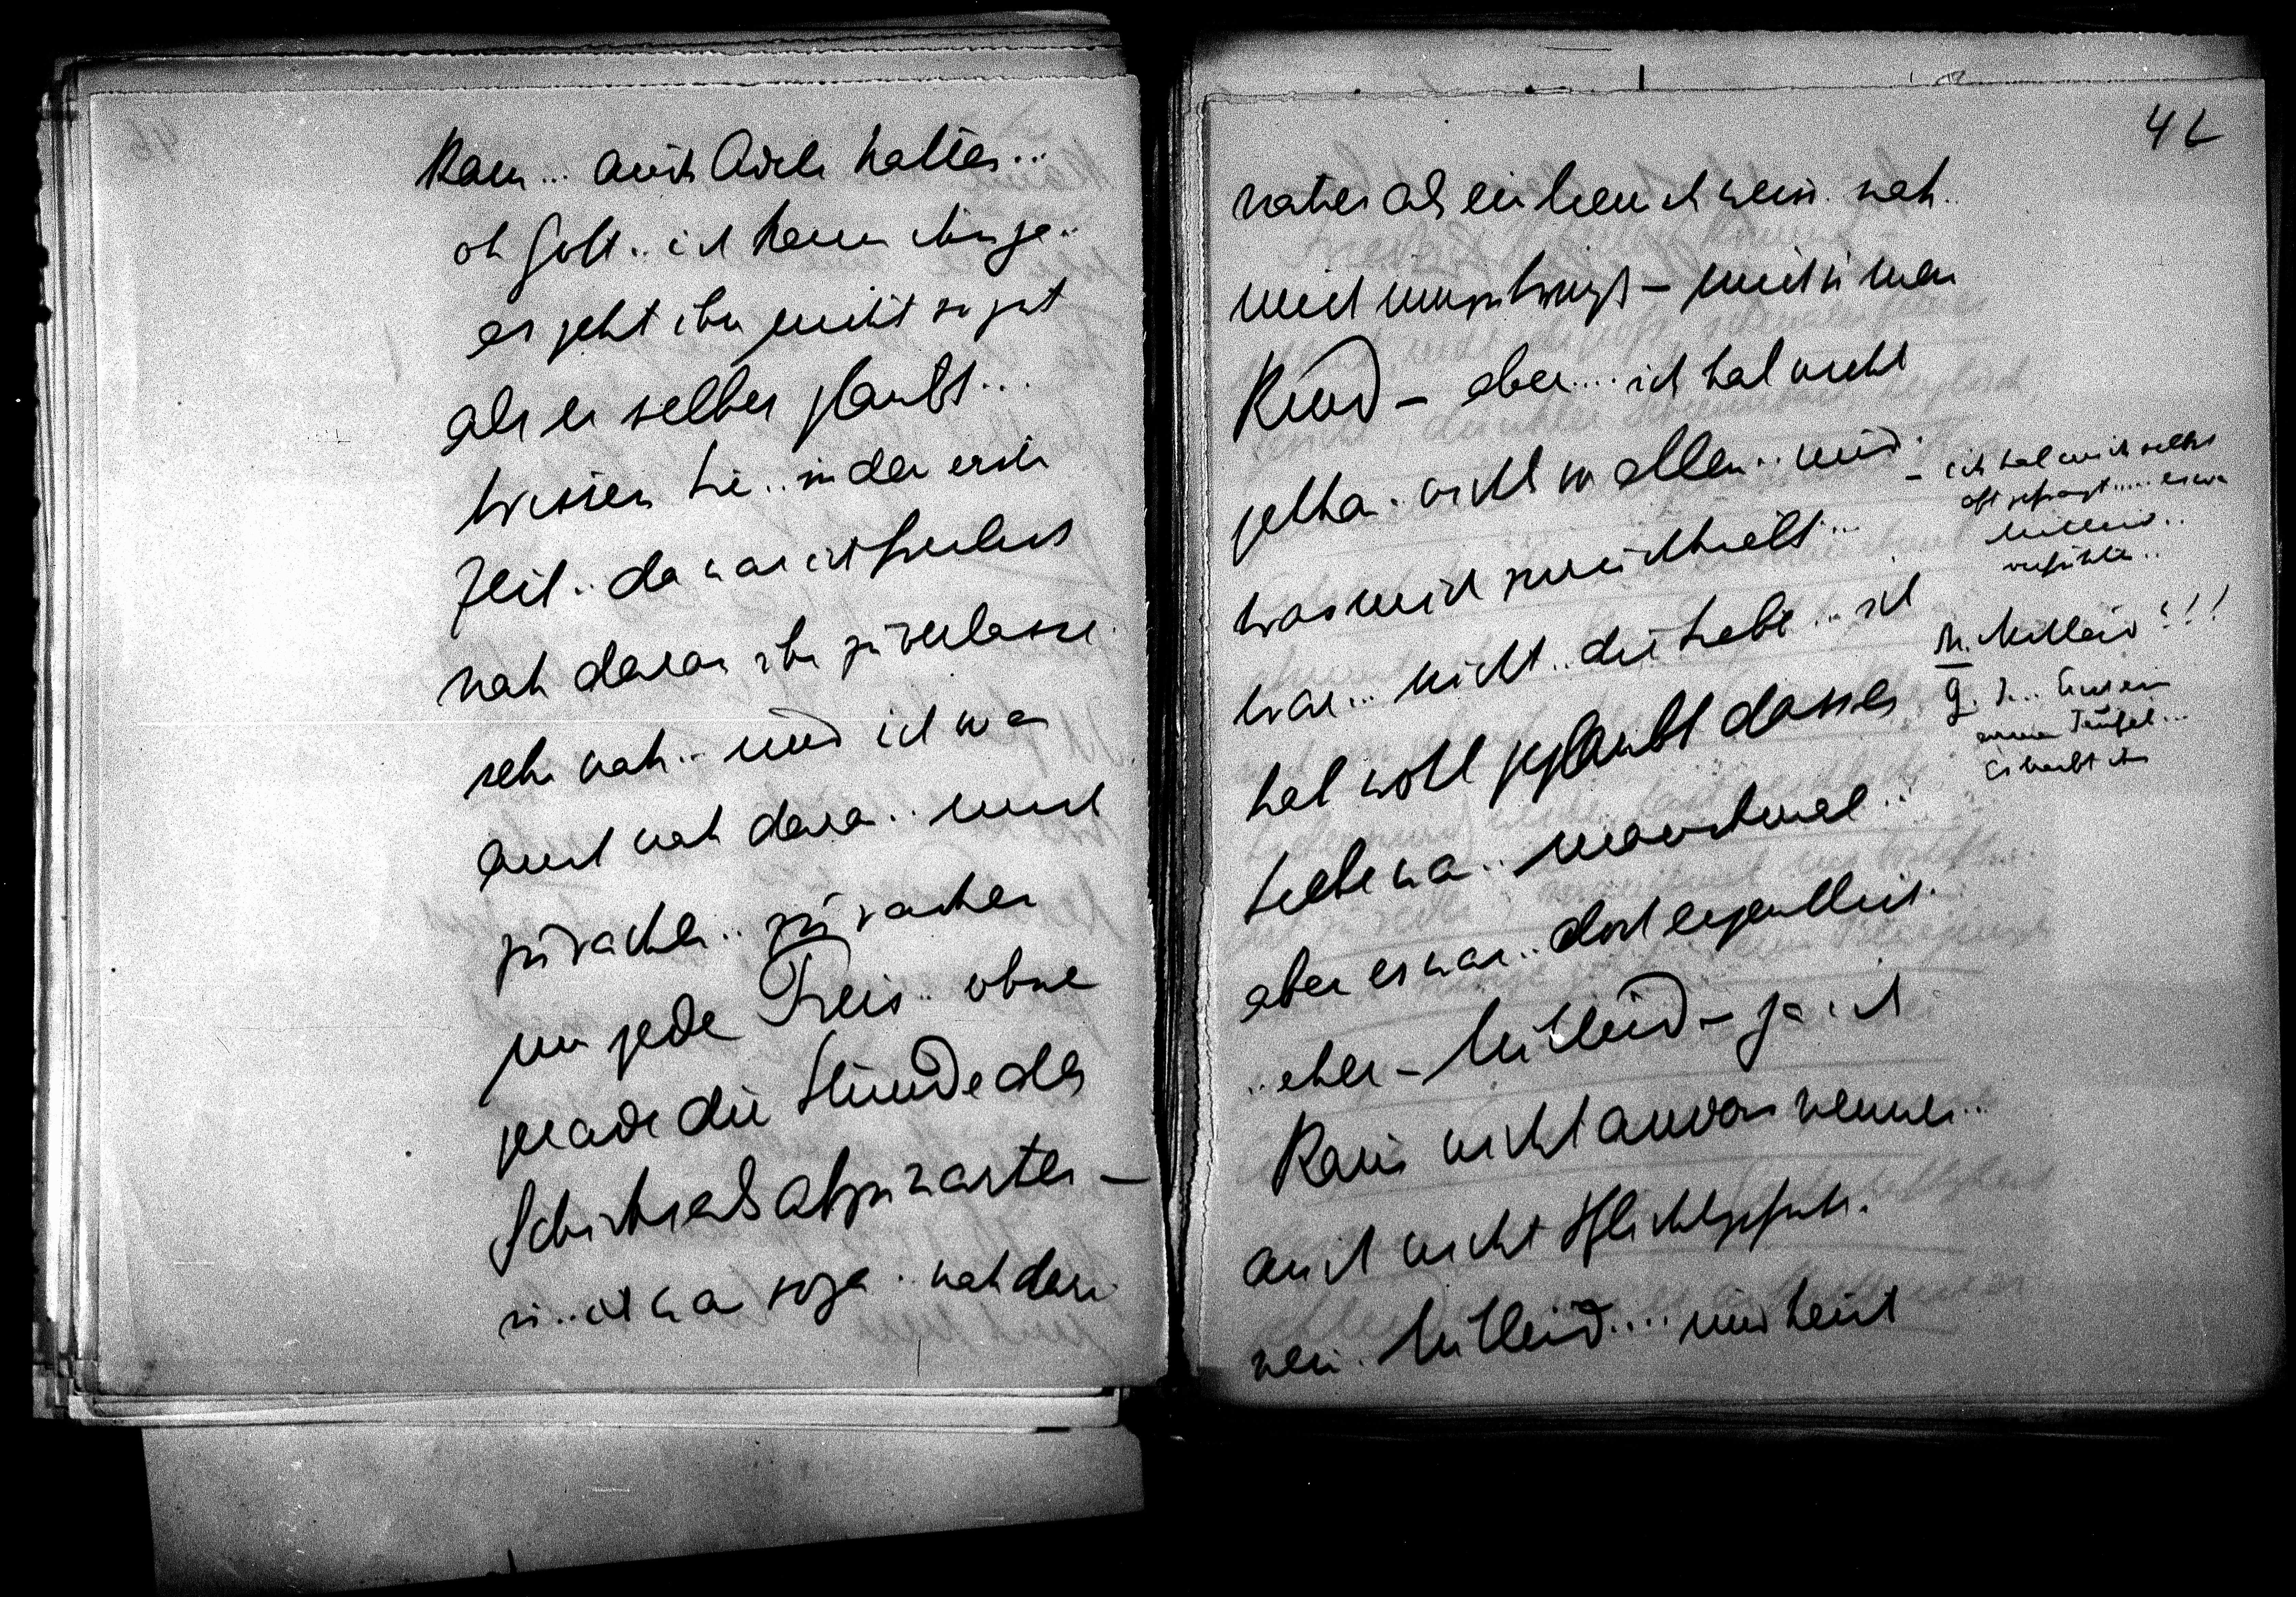 kann... auch Adele halten...
oh Gott.. ich kenn ihn ja..
es geht ihm nicht so gut
als er selber glaubt...
Wissen Sie.. in der erste
Zeit.. da war ich
nah daran ihn zu verlasse
sehr nah.. und ich wa
auch nah dara.. mich
zu rächen.. zu rächen
um jede Preis.. ohne
grade die Stunde des
Schicksals abzuwarten –
.. ich wa soga.. nah dara
42
näher als ein ich weiss. nah..
mich umzubringe – mich u mein
Kind – aber.... ich hab nicht
getha.. nicht wollen.. und
was mich zurückhielt...
war... nicht.. die Liebe.. ich
hab wohl geglaubt dass es
Liebe wa.. manchmal..
aber es war.. doch eigentlich.
.. eher – Mitleid – ja ich
kann nicht anders nennen..
auch nicht Pflichtgefühl.
nein. Mitleid.... und heut
– ich hab mich selbst
oft gefragt..... es wa
Mitleid..
M. Mitleid!!!
G. J...
arme Teufel...